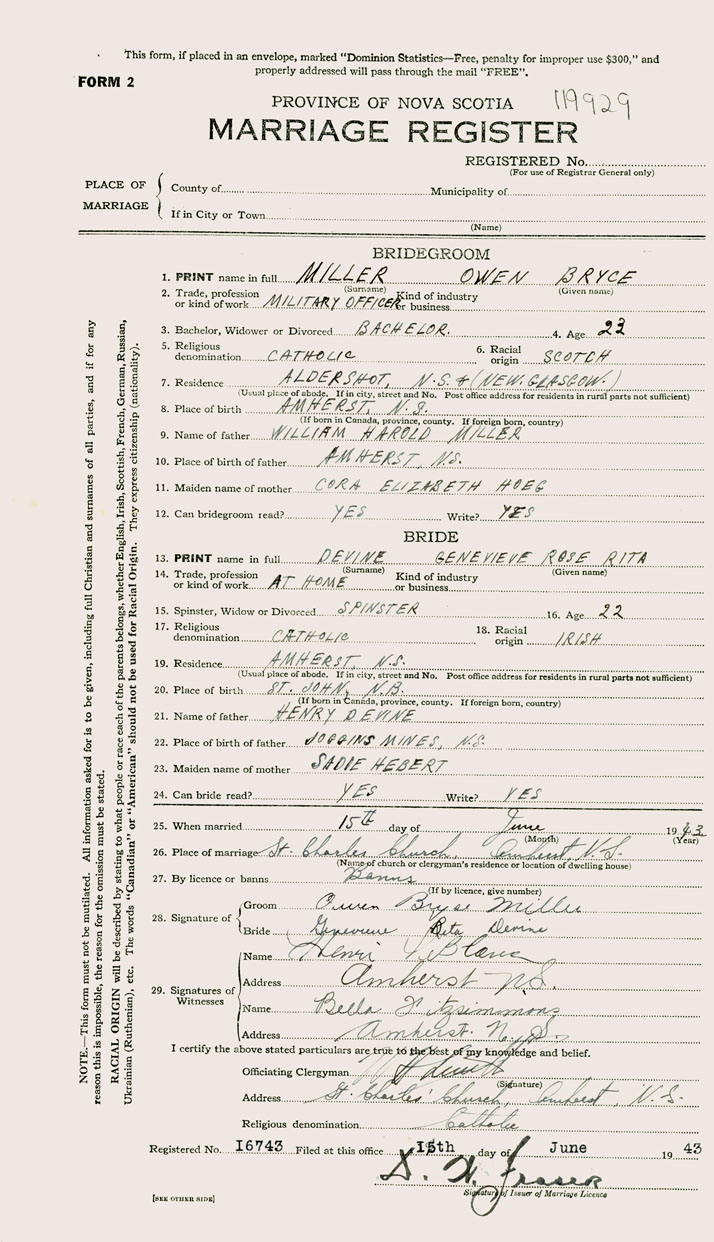 This form, if placed in an envelope, marked "Dominion Statistics—Free, penalty for improper use $300," and
properly addressed will pass through the mail "FREE".
FORM 2
PROVINCE OF NOVA SCOTIA 119929
MARRIAGE REGISTER
REGISTERED No.
(For use of Registrar General only)
PLACE OF MARRIAGE
County of Municipality of
If in City or Town
(Name)
BRIDEGROOM
1. PRINT name in full MILLER OWEN BRYCE
(Surname) (Given name)
2. Trade, profession or kind of work MILITARY OFFICER Kind of industry or business
3. Bachelor, Widower or Divorced BACHELOR. 4. Age 23
5. Religious denomination CATHOLIC 6. Racial origin SCOTCH
7. Residence ALDERSHOT, N.S. & (NEW GLASGOW.)
(Usual place of abode. If in city, street and No. Post office address for residents in rural parts not sufficient)
8. Place of birth AMHERST, N.S.
(If born in Canada, province, county. If foreign born, country)
9. Name of father WILLIAM HAROLD MILLER
10. Place of birth of father AMHERST, N.S.
11. Maiden name of mother CORA ELIZABETH HOEG
12. Can bridegroom read? YES Write? YES
BRIDE
13. PRINT name in full DEVINE GENEVIEVE ROSE RITA
(Surname) (Given name)
14. Trade, profession or kind of work AT HOME Kind of industry or business
15. Spinster, Widow or Divorced SPINSTER 16. Age 22
17. Religious denomination CATHOLIC 18. Racial origin IRISH
19. Residence AMHERST, N.S.
(Usual place of abode. If in city, street and No. Post office address for residents in rural parts not sufficient)
20. Place of birth ST. JOHN, N.B.
(If born in Canada, province, county. If foreign born, country)
21. Name of father HENRY DEVINE
22. Place of birth of father JOGGINS MINES, N.S.
23. Maiden name of mother SADIE HEBERT
24. Can bride read? YES Write? YES
25. When married 15th day of June 1943
(Month) (Year)
26. Place of marriage St. Charles Church, Amherst, N.S.
(Name of church or clergyman's residence or location of dwelling house)
27. By licence or banns Banns
(If by licence, give number)
28. Signature of
Groom Owen Bryce Miller
Bride Genevieve Rita Devine
29. Signatures of Witnesses
Name Henri LeBlanc
Address Amherst N.S.
Name Bella Fitzsimmons
Address Amherst. N.S.
I certify the above stated particulars are true to the best of my knowledge and belief.
Officiating Clergyman
(Signature)
Address St. Charles' Church, Amherst, N.S.
Religious denomination Catholic
Registered No. I6743 Filed at this office 15th day of June 19 43
D. W. Fraser
Signature of Issuer of Marriage Licence
[SEE OTHER SIDE]
NOTE.—This form must not be mutilated. All information asked for is to be given, including full Christian and surnames of all parties, and if for any
reason this is impossible, the reason for the omission must be stated.
RACIAL ORIGIN will be described by stating to what people or race each of the parents belongs, whether English, Irish, Scottish, French, German, Russian,
Ukrainian (Ruthenian), etc. The words "Canadian" or "American" should not be used for Racial Origin. They express citizenship (nationality).